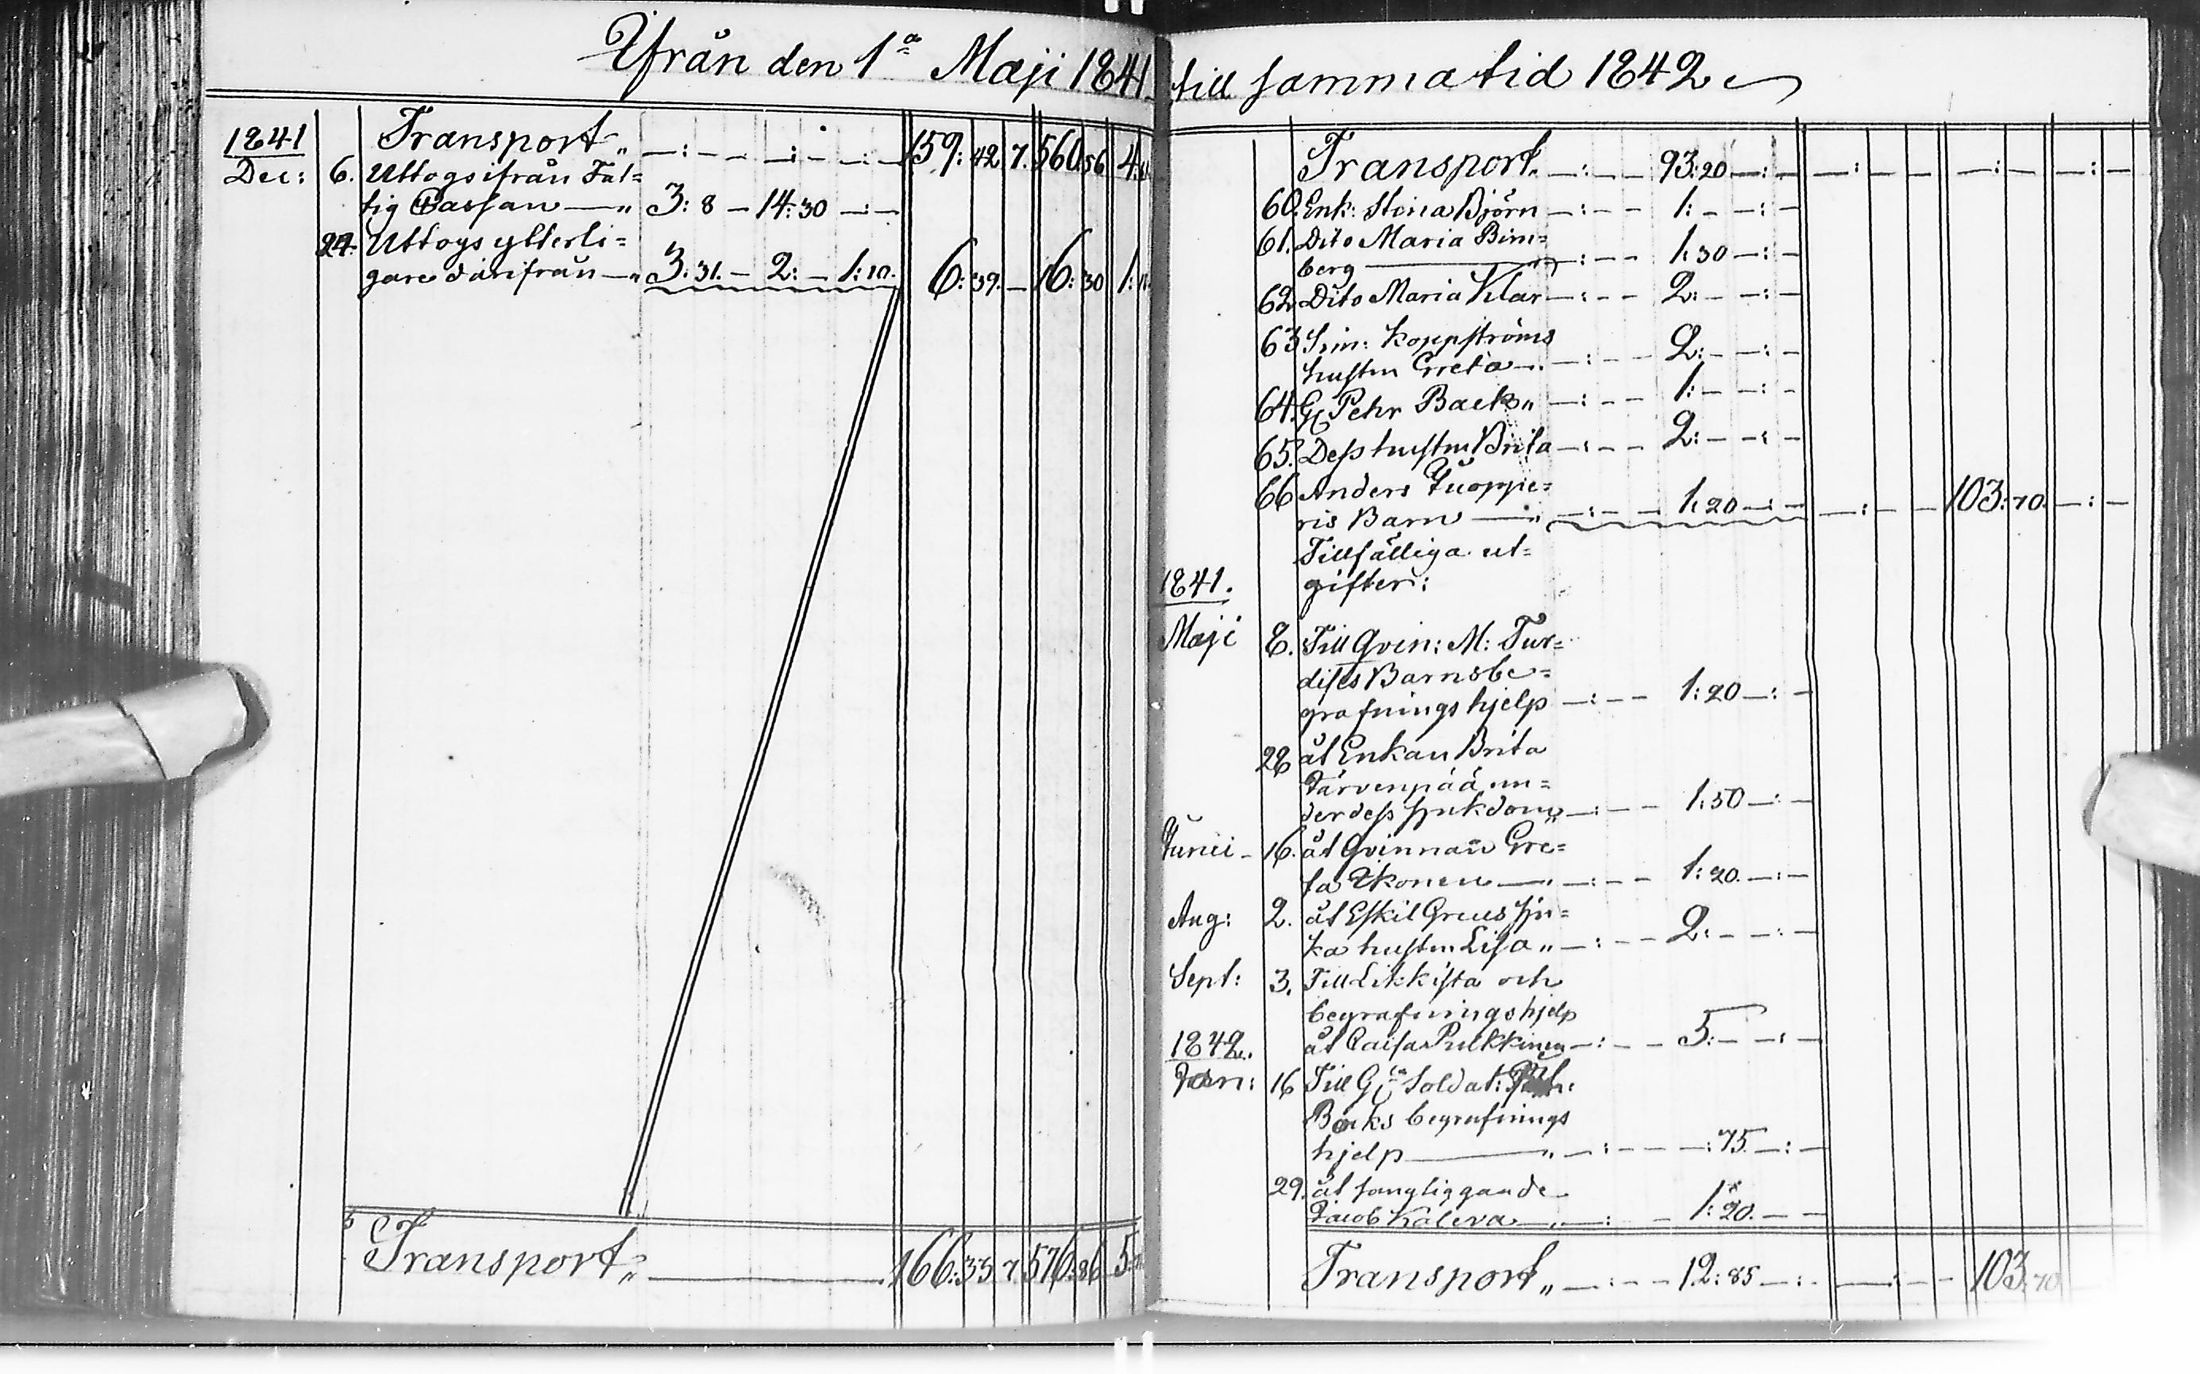 Ifrån den 1a Maji 1841 till samma tid 1842
1841 Transport „ — : — — — : — : — 159: 42 7. 560 56 4:
Dec: 6. Uttogs ifrån Fat=
tig Cassan — „ 3: 8 — 14: 30 — : —
24. Uttogs ytterli=
gare därifrån — „ 3: 31. — 2: — 1: 10. 6: 39. — 16: 30 1:
Transport „ — 166: 33 7 576: 86 5:
Transport „ — : — — 93: 20 — : — — : — — — : — — : —
60. Enk: Stina Björn — : — — 1: — — : —
61. Dito Maria Bim=
berg — „ — : — — 1: 30 — : —
62 Dito Maria Klar — : — — 2: — — : —
63 Sim: Koppströms
hustru Greta — „ — : — — 2: — — : —
64. Gl Pehr Back „ — : — — 1: — — : —
65. Dess hustru Brita — : — — 2: — — : —
66 Anders Juoppe=
ris Barn — „ — : — — 1: 20 — : — — : — — 103: 70. — : —
Tillfälliga ut=
1841. gifter:
Maji 8. Till Qvin: M: Tur=
dises Barnsbe=
grafnings hjelp — : — — 1: 20 — : —
28 åt Enkan Brita
Järvenpää un=
der dess sjukdom „ — : — — 1: 50 — : —
Junii — 16. åt Qvinnan Gre=
ta Ikonen — „ — : — — 1: 20. — : —
Aug: 2. åt Eskil Greus sju=
ka hustru Lisa „ — : — — 2: — — : —
Sept: 3. Till Likkista och
begrafnings hjelp
1842. åt Caisa Pulkkinen — : — — 5: — — : —
Jan: 16 Till Gla Soldat:
Backs begrafnings
hjelp — „ — : — — — : 75. — : —
29. åt sängliggande
Jacob Kaleva — „ — : — 1: 20. — —
Transport „ — : — — 12: 85 — : — — : — — 103: 70